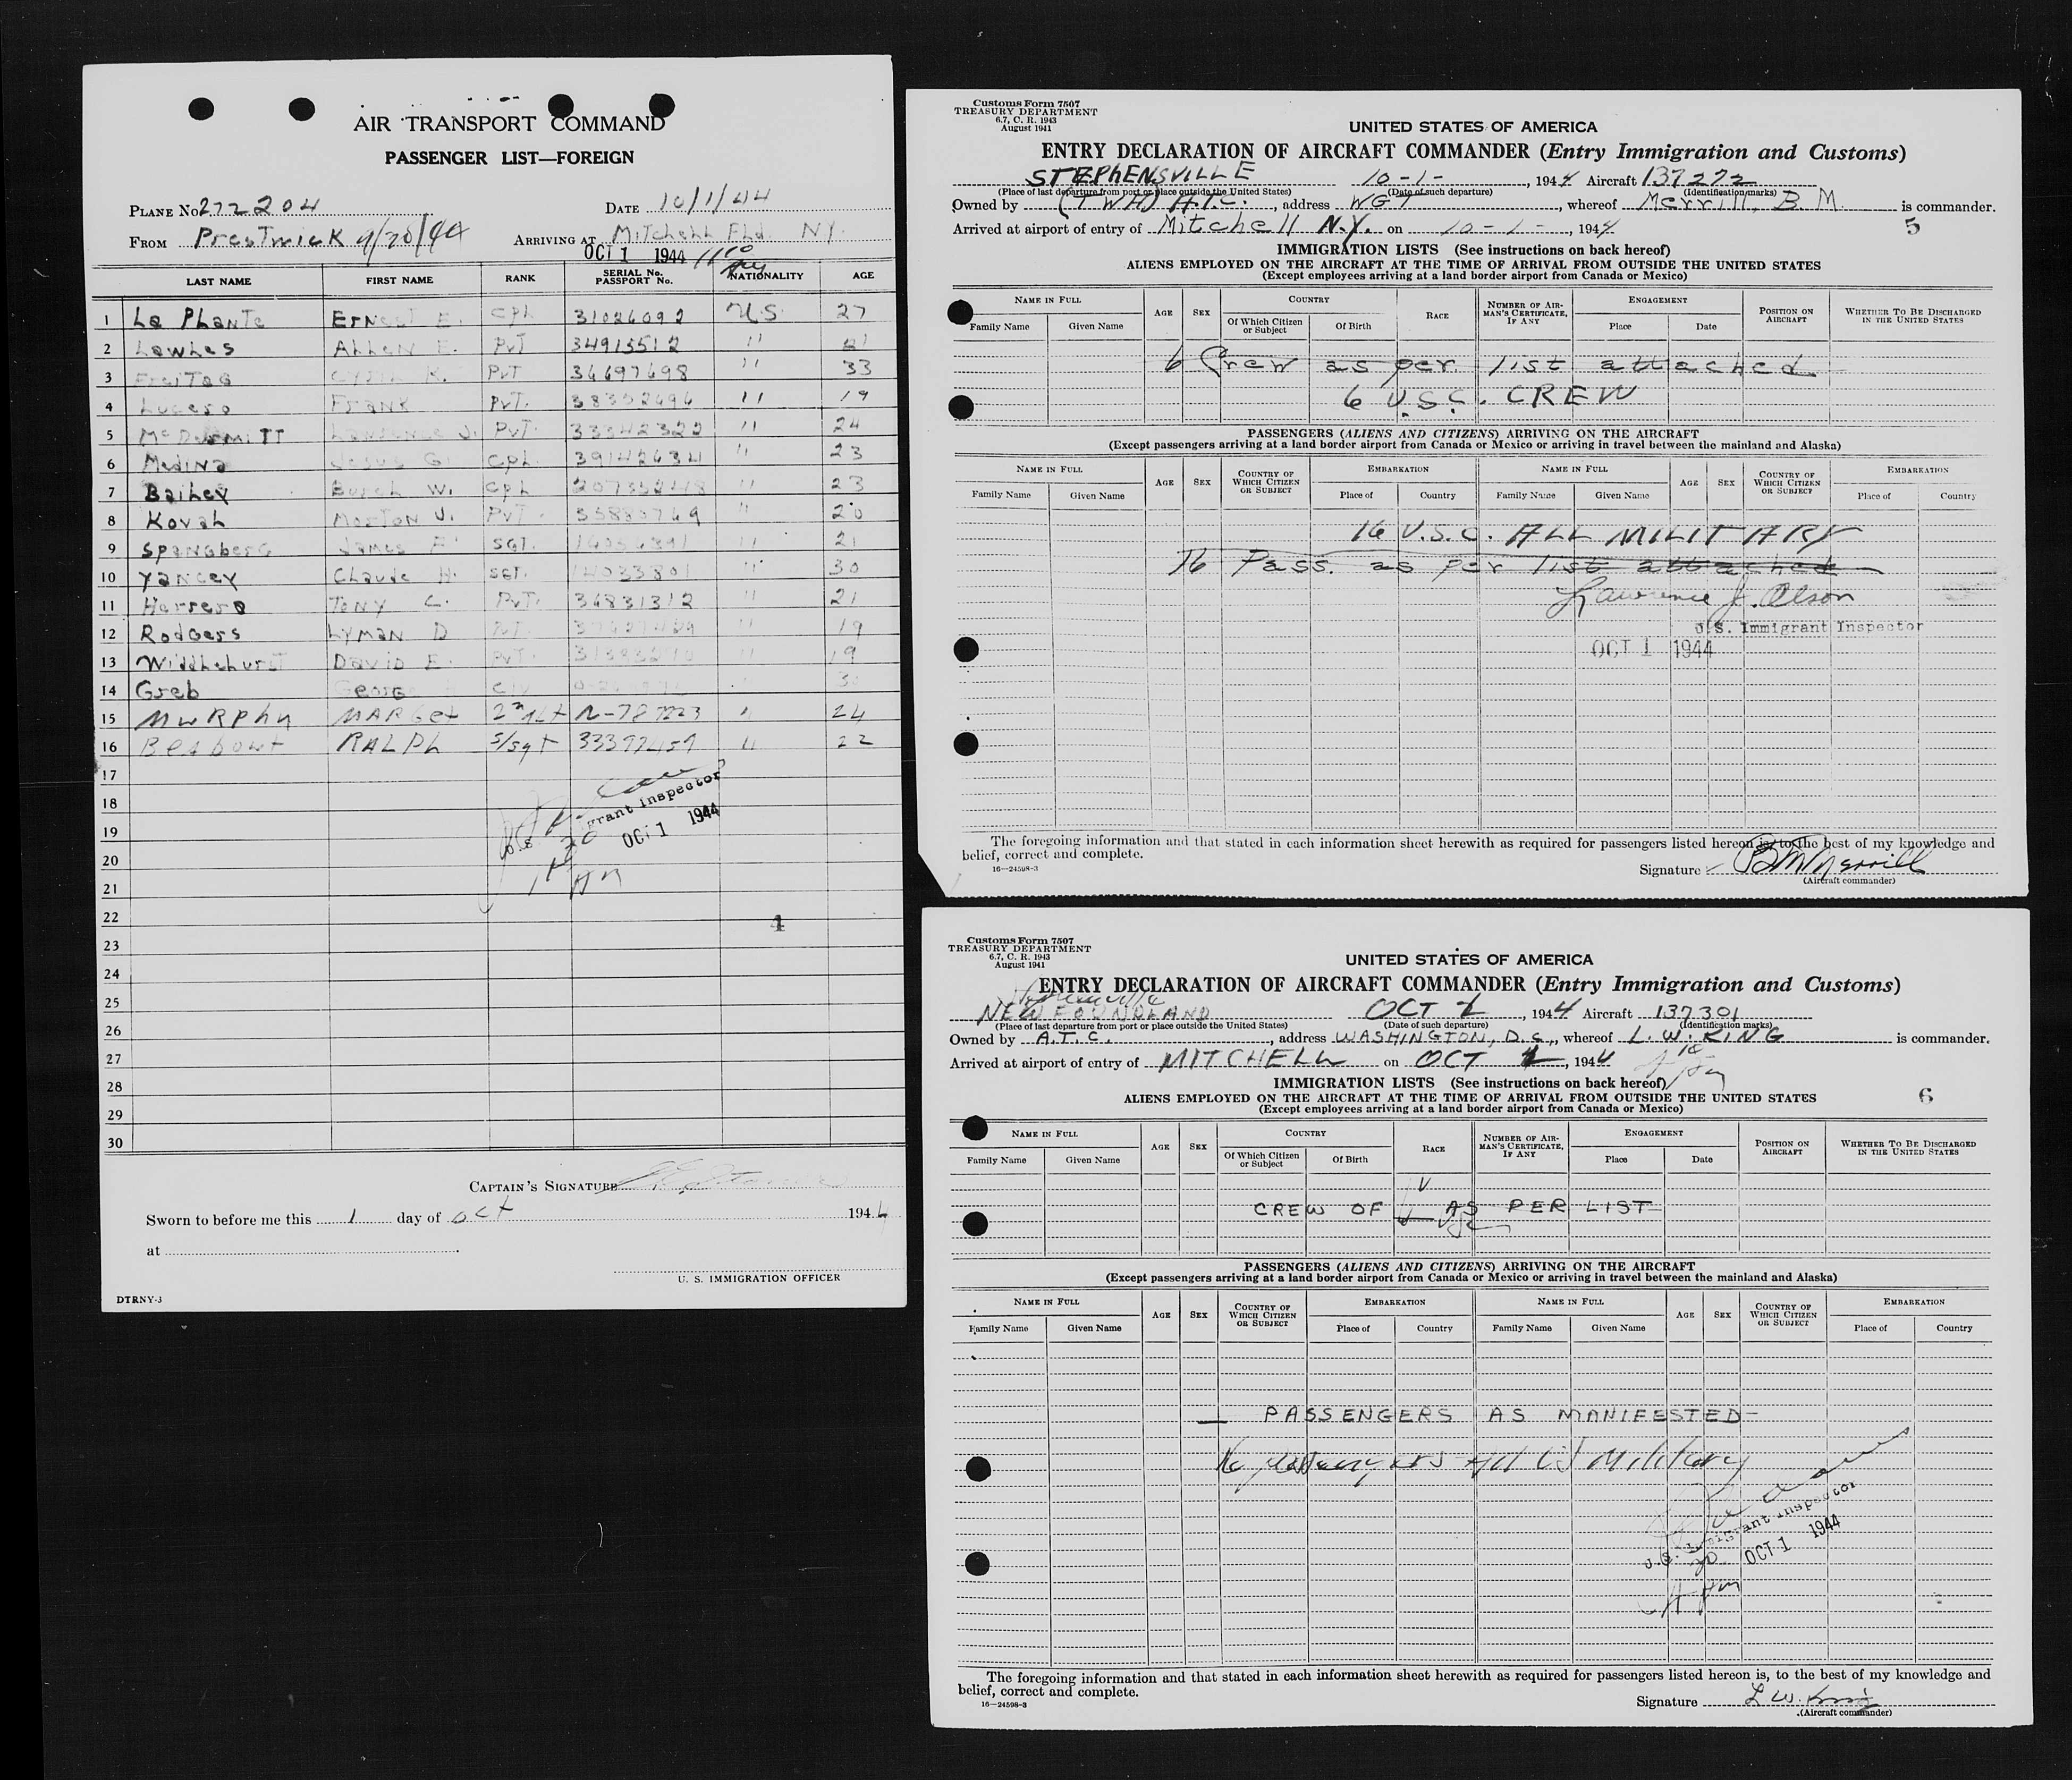 AIR TRANSPORT COMMAND
PASSENGER LIST—FOREIGN
PLANE No. 272204 DATE 10/1/44
FROM Prestwick 9/30/44 ARRIVING AT Mitchell Fld. NY.
OCT 1 1944
LAST NAME FIRST NAME RANK SERIAL No. PASSPORT No. NATIONALITY AGE
1 La Plante Ernest E. Cpl 31026092 U.S. 27
2 Lawles Allen E. Pvt 34915512 " 21
3 Freitag Pvt 36697698 " 33
4 Lucero Frank Pvt. 38352696 " 19
5 McDurmitt J. Pvt. 33542322 " 24
6 Medina Jesus G. Cpl. 39142634 " 23
7 Bailey W. Cpl " 23
8 Koval Morton J. Pvt. " 20
9 Spangberg James F. Sgt. " 21
10 Yancey Claude H. Sgt. 14033801 " 30
11 Herrero Tony C. Pvt. 34831312 " 21
12 Rodgers Lyman D Pvt. 19
13 Widdlehurst David E. Pvt. 19
14 Greb George Civ
15 MURPHy MARGet 2nd Lt N-787223 " 24
16 RALPh S/Sgt " 22
17
18
19
20
21
22
23
24
25
26
27
28
29
30
grant Inspector
OCT 1 1944
4
CAPTAIN'S SIGNATURE
Sworn to before me this 1 day of oct 1944
at
U. S. IMMIGRATION OFFICER
DTRNY-3
Customs Form 7507
TREASURY DEPARTMENT
6.7, C. R. 1943
August 1941
UNITED STATES OF AMERICA
ENTRY DECLARATION OF AIRCRAFT COMMANDER (Entry Immigration and Customs)
STEPHENSVILLE 10-1-, 1944 Aircraft 137272
(Place of last departure from port or place outside the United States) (Date of such departure) (Identification marks)
Owned by (TWA) A.T.C., address WGT, whereof Merrill, B M. is commander.
Arrived at airport of entry of Mitchell N.Y. on 10-1-, 1944
5
IMMIGRATION LISTS (See instructions on back hereof)
ALIENS EMPLOYED ON THE AIRCRAFT AT THE TIME OF ARRIVAL FROM OUTSIDE THE UNITED STATES
(Except employees arriving at a land border airport from Canada or Mexico)
NAME IN FULL AGE SEX COUNTRY RACE NUMBER OF AIRMAN'S CERTIFICATE, IF ANY ENGAGEMENT POSITION ON AIRCRAFT WHETHER TO BE DISCHARGED IN THE UNITED STATES
Family Name Given Name Of Which Citizen or Subject Of Birth Place Date
6 Crew as per list attached
6 U.S.C. CREW
PASSENGERS (ALIENS AND CITIZENS) ARRIVING ON THE AIRCRAFT
(Except passengers arriving at a land border airport from Canada or Mexico or arriving in travel between the mainland and Alaska)
NAME IN FULL AGE SEX COUNTRY OF WHICH CITIZEN OR SUBJECT EMBARKATION NAME IN FULL AGE SEX COUNTRY OF WHICH CITIZEN OR SUBJECT EMBARKATION
Family Name Given Name Place of Country Family Name Given Name Place of Country
16 U.S.C. ALL MILITARY
16 Pass. as per list attached
Lawrence J. Olson
U.S. Immigrant Inspector
OCT 1 1944
The foregoing information and that stated in each information sheet herewith as required for passengers listed hereon is, to the best of my knowledge and
belief, correct and complete.
16—24598-3
Signature B M Merrill
(Aircraft commander)
Customs Form 7507
TREASURY DEPARTMENT
6.7, C. R. 1943
August 1941
UNITED STATES OF AMERICA
ENTRY DECLARATION OF AIRCRAFT COMMANDER (Entry Immigration and Customs)
NEWFOUNDLAND OCT 1, 1944 Aircraft 137301
(Place of last departure from port or place outside the United States) (Date of such departure) (Identification marks)
Owned by A.T.C., address WASHINGTON, D.C., whereof L. W. KING is commander.
Arrived at airport of entry of MITCHELL on OCT 1, 1944
IMMIGRATION LISTS (See instructions on back hereof)
6
ALIENS EMPLOYED ON THE AIRCRAFT AT THE TIME OF ARRIVAL FROM OUTSIDE THE UNITED STATES
(Except employees arriving at a land border airport from Canada or Mexico)
NAME IN FULL AGE SEX COUNTRY RACE NUMBER OF AIRMAN'S CERTIFICATE, IF ANY ENGAGEMENT POSITION ON AIRCRAFT WHETHER TO BE DISCHARGED IN THE UNITED STATES
Family Name Given Name Of Which Citizen or Subject Of Birth Place Date
CREW OF 6 AS PER LIST
PASSENGERS (ALIENS AND CITIZENS) ARRIVING ON THE AIRCRAFT
(Except passengers arriving at a land border airport from Canada or Mexico or arriving in travel between the mainland and Alaska)
NAME IN FULL AGE SEX COUNTRY OF WHICH CITIZEN OR SUBJECT EMBARKATION NAME IN FULL AGE SEX COUNTRY OF WHICH CITIZEN OR SUBJECT EMBARKATION
Family Name Given Name Place of Country Family Name Given Name Place of Country
— PASSENGERS AS MANIFESTED —
16 passengers All US Military
U.S. Immigrant Inspector
OCT 1 1944
The foregoing information and that stated in each information sheet herewith as required for passengers listed hereon is, to the best of my knowledge and
belief, correct and complete.
16—24598-3
Signature L W. King
(Aircraft commander)